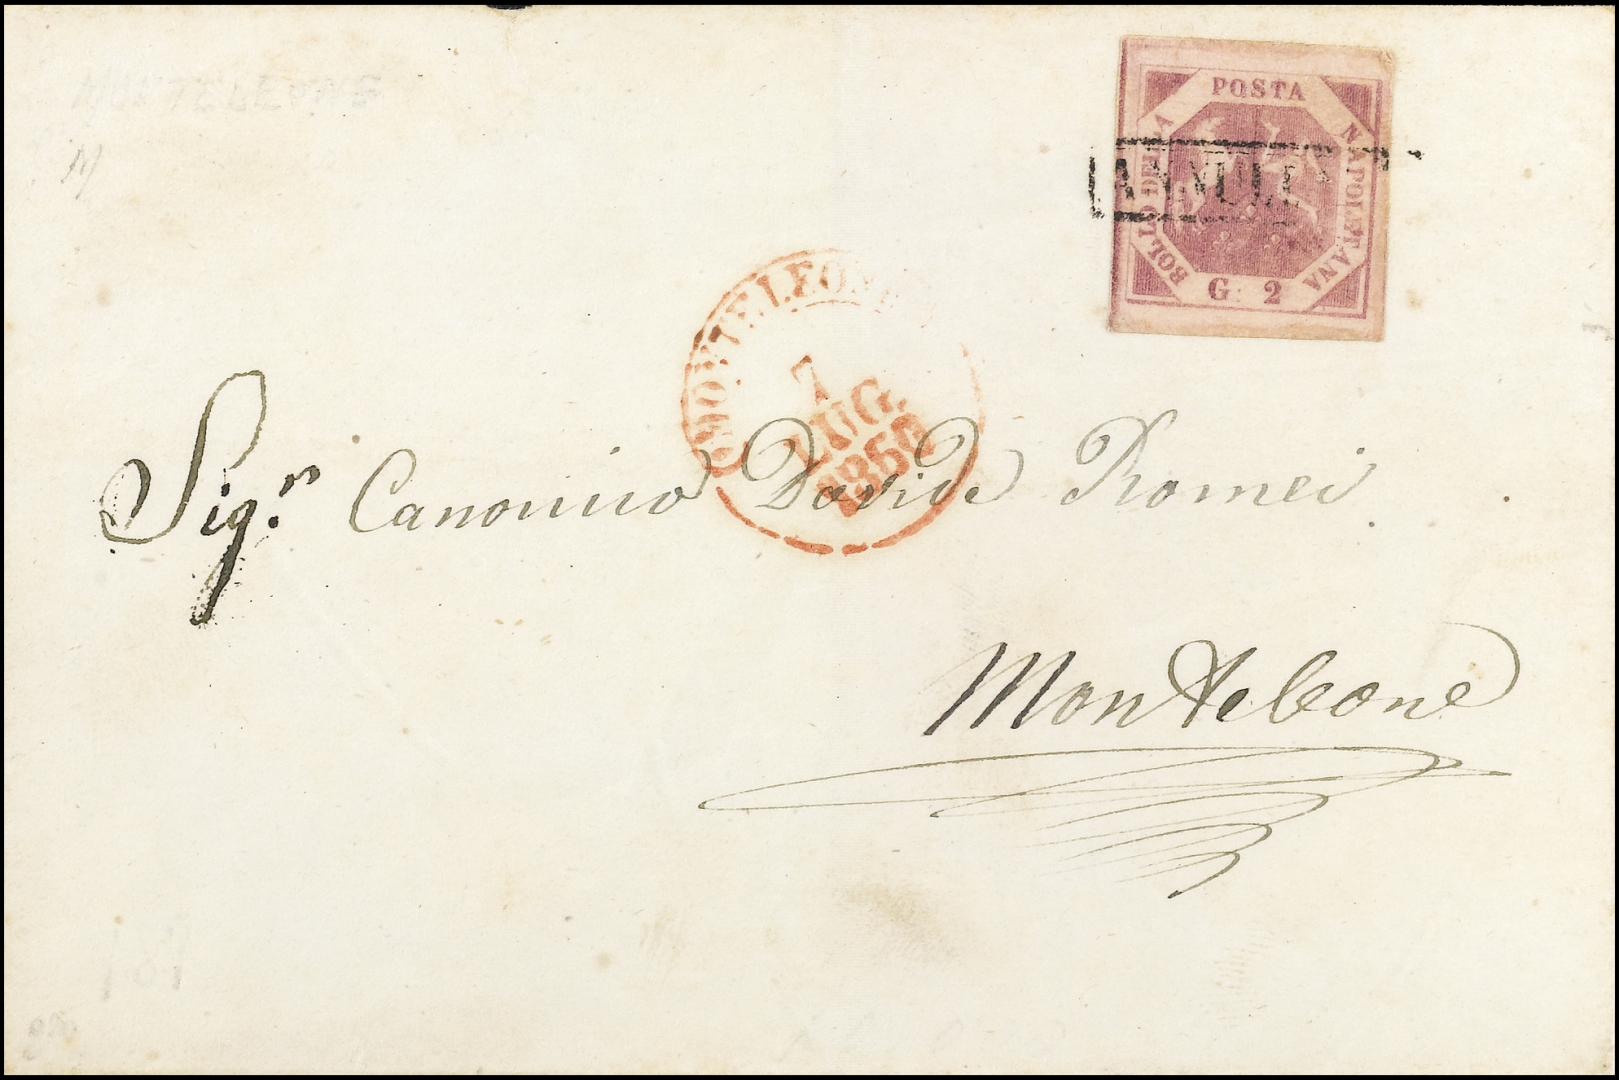 MONTELEONE
BOLLO DELLA
POSTA
NAPOLETANA
G. 2
ANNUL
MONTELEONE
7
LUG.
1860
Sig.r Canonico Davide Romei
Monteleone